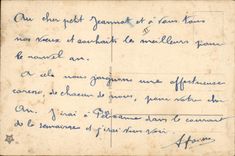 Au cher petit Jeannot et à vous tous
nos vœux et souhaits les meilleurs pour
le nouvel an.
A cela nous joignons une affectueuse
caresse, de chacun de nous, pour votre cher
An. J'irai à Pélissanne dans le courant
de la semaine et j'irai vous voir.